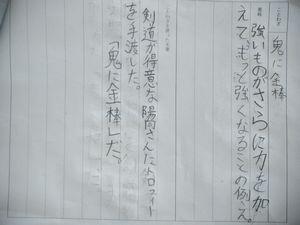 ことわざ
鬼に金棒
意味
強いものがさらに力を加
えて、もっと強くなることの例え。
ことわざを使った文章
剣道が得意な陽さんにトロフィー
を手渡した。
「鬼に金棒」だ。